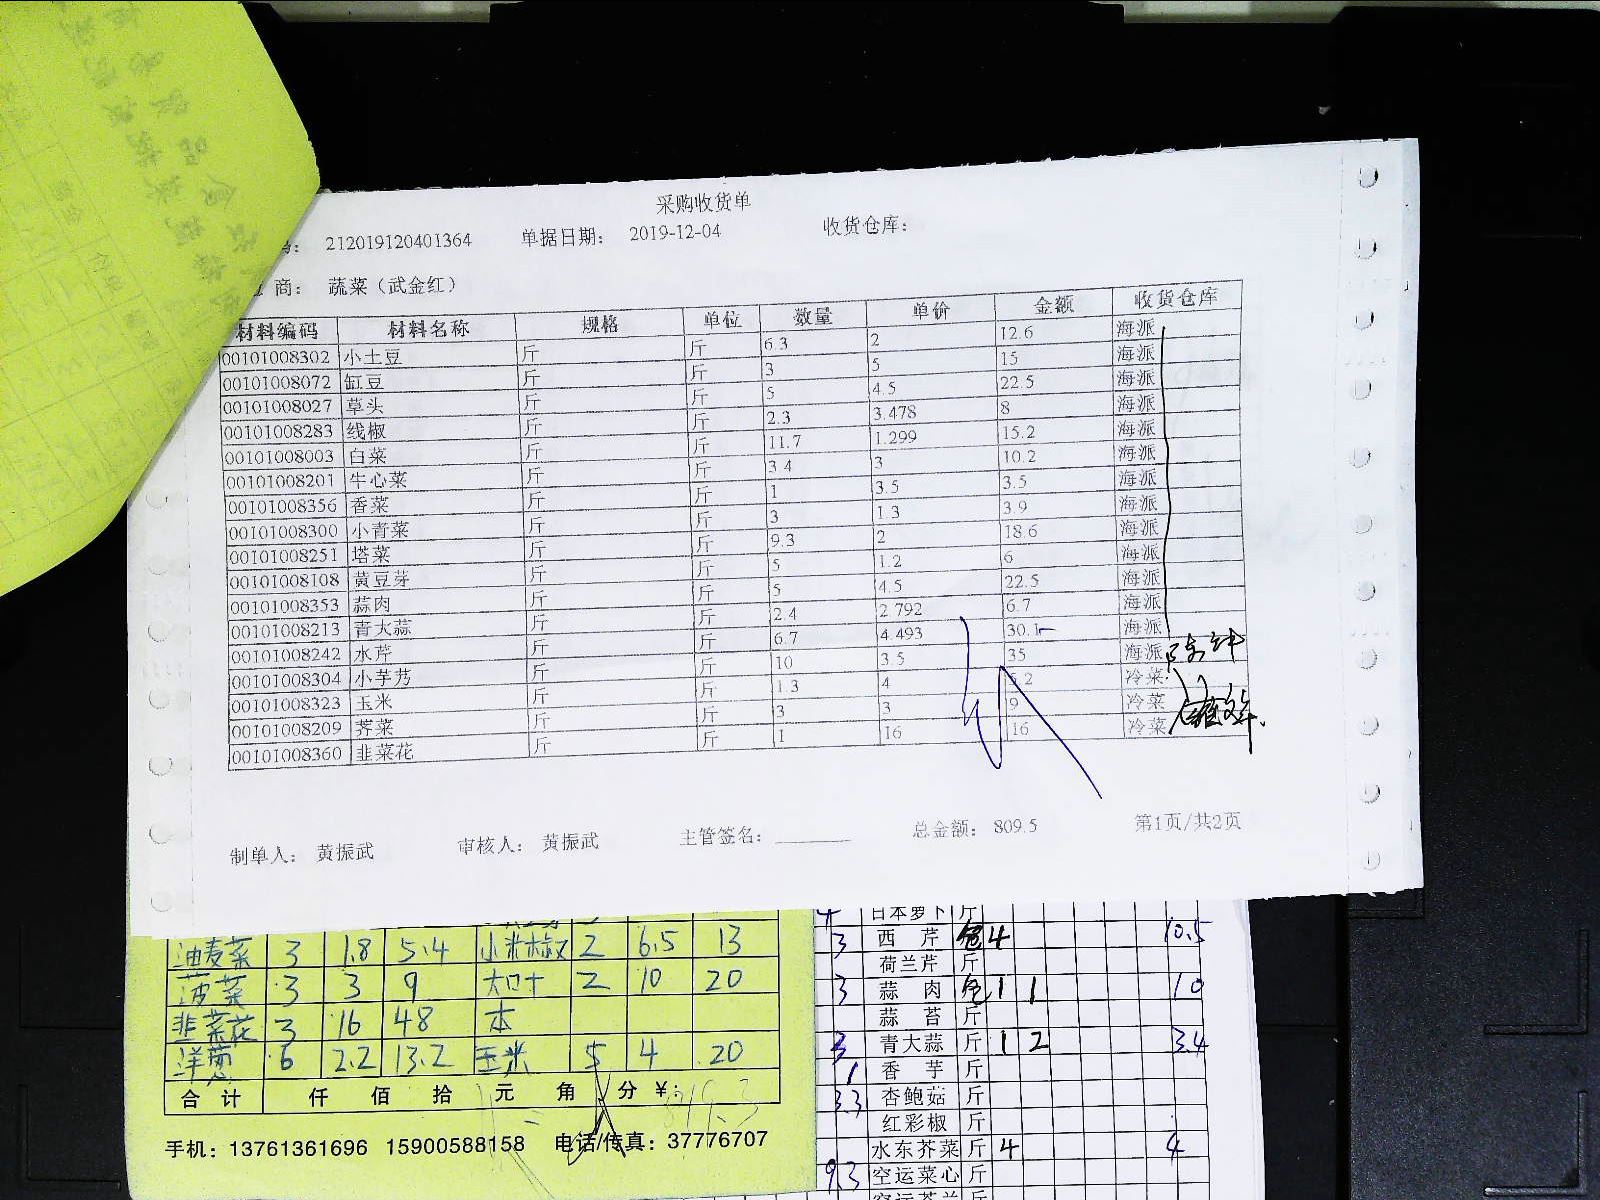 采购收货单
号： 212019120401364 单据日期： 2019-12-04 收货仓库：
商： 蔬菜（武金红）
材料编码 材料名称 规格 单位 数量 单价 金额 收货仓库
00101008302 小土豆 斤 斤 6.3 2 12.6 海派
00101008072 缸豆 斤 斤 3 5 15 海派
00101008027 草头 斤 斤 5 4.5 22.5 海派
00101008283 线椒 斤 斤 2.3 3.478 8 海派
00101008003 白菜 斤 斤 11.7 1.299 15.2 海派
00101008201 牛心菜 斤 斤 3.4 3 10.2 海派
00101008356 香菜 斤 斤 1 3.5 3.5 海派
00101008300 小青菜 斤 斤 3 1.3 3.9 海派
00101008251 塔菜 斤 斤 9.3 2 18.6 海派
00101008108 黄豆芽 斤 斤 5 1.2 6 海派
00101008353 蒜肉 斤 斤 5 4.5 22.5 海派
00101008213 青大蒜 斤 斤 2.4 2.792 6.7 海派
00101008242 水芹 斤 斤 6.7 4.493 30.1 海派
00101008304 小芋艿 斤 斤 10 3.5 35 海派
00101008323 玉米 斤 斤 1.3 4 5.2 冷菜
00101008209 荠菜 斤 斤 3 3 9 冷菜
00101008360 韭菜花 斤 斤 1 16 16 冷菜
制单人： 黄振武 审核人： 黄振武 主管签名： 总金额： 809.5 第1页/共2页
油麦菜 3 1.8 5.4 小米椒 2 6.5 13
菠菜 3 3 9 大口十 2 10 20
韭菜花 3 16 48 本
洋葱 6 2.2 13.2 玉米 5 4 20
合计 仟 佰 拾 元 角 分 ¥：
手机：13761361696 15900588158 电话/传真：37776707
4 日本萝卜 斤
3 西芹 4 10.5
荷兰芹 斤
3 蒜肉 1 1 10
蒜苔 斤
3 青大蒜 斤 1 2 3.4
1 香芋 斤
3.3 杏鲍菇 斤
红彩椒 斤
水东芥菜 斤 4 4
9.3 空运菜心 斤